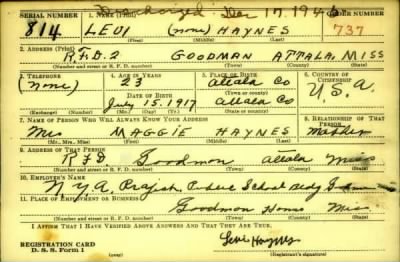 Discharged Dec 17, 194
SERIAL NUMBER 1. NAME (Print) ORDER NUMBER
814 LEVI (none) HAYNES 737
(First) (Middle) (Last)
2. ADDRESS (Print)
R.F.D.2 GOODMAN ATTALA, MISS
(Number and street or R. F. D. number) (Town) (County) (State)
3. TELEPHONE 4. AGE IN YEARS 5. PLACE OF BIRTH 6. COUNTRY OF CITIZENSHIP
(none) 23 Attala Co U.S.A.
DATE OF BIRTH (Town or county)
July 15. 1917 Attala Co
(Exchange) (Number) (Mo.) (Day) (Yr.) (State or country)
7. NAME OF PERSON WHO WILL ALWAYS KNOW YOUR ADDRESS 8. RELATIONSHIP OF THAT PERSON
Mrs MAGGIE HAYNES Mother
(Mr., Mrs., Miss) (First) (Middle) (Last)
9. ADDRESS OF THAT PERSON
RFD Goodman Attala Miss
(Number and street or R. F. D. number) (Town) (County) (State)
10. EMPLOYER'S NAME
N.Y.A. Project Public School Bldg
11. PLACE OF EMPLOYMENT OR BUSINESS
Goodman Homes Miss
(Number and street or R. F. D. number) (Town) (County) (State)
I AFFIRM THAT I HAVE VERIFIED ABOVE ANSWERS AND THAT THEY ARE TRUE.
REGISTRATION CARD
D. S. S. Form 1 Levi Haynes
(Registrant's signature)